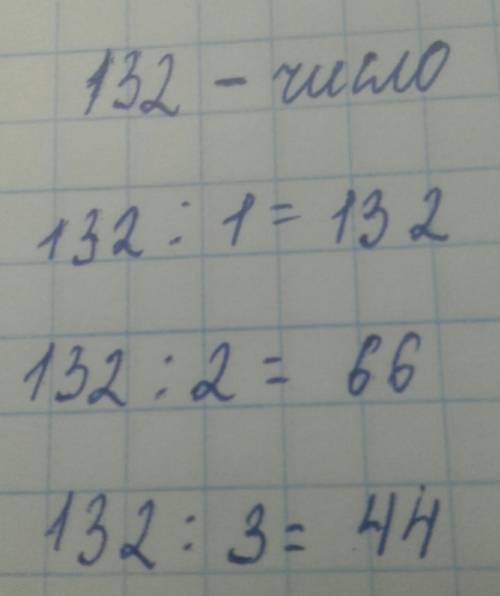 132 - число
132 : 1 = 132
132 : 2 = 66
132 : 3 = 44